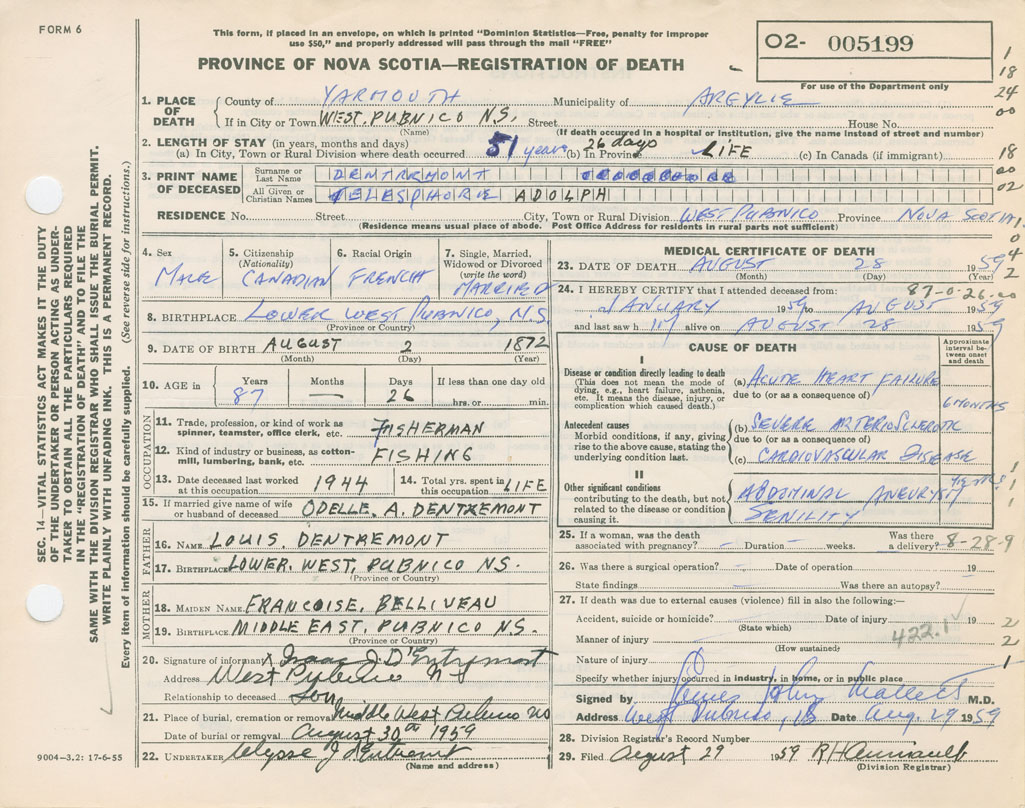 FORM 6
This form, if placed in an envelope, on which is printed "Dominion Statistics—Free, penalty for improper
use $50," and properly addressed will pass through the mail "FREE"
PROVINCE OF NOVA SCOTIA—REGISTRATION OF DEATH
02- 005199
For use of the Department only
1
18
24
00
18
00
02
SEC. 14—VITAL STATISTICS ACT MAKES IT THE DUTY
OF THE UNDERTAKER OR PERSON ACTING AS UNDER-
TAKER TO OBTAIN ALL THE PARTICULARS REQUIRED
IN THE "REGISTRATION OF DEATH" AND TO FILE THE
SAME WITH THE DIVISION REGISTRAR WHO SHALL ISSUE THE BURIAL PERMIT.
WRITE PLAINLY WITH UNFADING INK. THIS IS A PERMANENT RECORD.
Every item of information should be carefully supplied. (See reverse side for instructions.)
1. PLACE OF DEATH County of YARMOUTH Municipality of ARGYLE
If in City or Town WEST. PUBNICO N.S. Street House No.
(Name) (If death occurred in a hospital or institution, give the name instead of street and number)
2. LENGTH OF STAY (in years, months and days)
(a) In City, Town or Rural Division where death occurred 51 years 26 days (b) In Province LIFE (c) In Canada (if immigrant)
3. PRINT NAME OF DECEASED Surname or Last Name DENTREMONT
All Given or Christian Names TELESPHORE ADOLPH
RESIDENCE No. Street City, Town or Rural Division WEST PUBNICO Province NOVA SCOTIA
(Residence means usual place of abode. Post Office Address for residents in rural parts not sufficient)
4. Sex MALE
5. Citizenship (Nationality) CANADIAN
6. Racial Origin FRENCH
7. Single, Married, Widowed or Divorced (write the word) MARRIED
8. BIRTHPLACE LOWER WEST PUBNICO, N.S.
(Province or Country)
9. DATE OF BIRTH AUGUST 2 1872
(Month) (Day) (Year)
10. AGE in Years 87 Months — Days 26 If less than one day old hrs. or min.
OCCUPATION
11. Trade, profession, or kind of work as spinner, teamster, office clerk, etc. FISHERMAN
12. Kind of industry or business, as cotton-mill, lumbering, bank, etc. FISHING
13. Date deceased last worked at this occupation 1944 14. Total yrs. spent in this occupation LIFE
15. If married give name of wife or husband of deceased ODELLE. A. DENTREMONT
FATHER
16. NAME LOUIS. DENTREMONT
17. BIRTHPLACE LOWER. WEST. PUBNICO NS.
(Province or Country)
MOTHER
18. MAIDEN NAME FRANCOISE. BELLIVEAU
19. BIRTHPLACE MIDDLE EAST. PUBNICO NS.
(Province or Country)
20. Signature of informant Isaac J. D'Entremont
Address West Pubnico NS
Relationship to deceased Son
21. Place of burial, cremation or removal Middle West Pubnico NS
Date of burial or removal August 30th 1959
22. UNDERTAKER Ulysse J D'Entremont
(Name and address)
9004—3.2: 17-6-55
MEDICAL CERTIFICATE OF DEATH
23. DATE OF DEATH AUGUST 28 1959
(Month) (Day) (Year)
24. I HEREBY CERTIFY that I attended deceased from: 87-0-26-00
JANUARY 1959 to AUGUST 1959
and last saw him alive on AUGUST 28 1959
CAUSE OF DEATH Approximate interval between onset and death
I
Disease or condition directly leading to death
(This does not mean the mode of dying, e.g., heart failure, asthenia, etc. It means the disease, injury, or complication which caused death.)
(a) ACUTE HEART FAILURE
due to (or as a consequence of)
6 MONTHS
Antecedent causes
Morbid conditions, if any, giving rise to the above cause, stating the underlying condition last.
(b) SEVERE ARTERIOSCLEROTIC
due to (or as a consequence of)
(c) CARDIOVASCULAR DISEASE
II
Other significant conditions
contributing to the death, but not related to the disease or condition causing it.
ABDOMINAL ANEURYSM
SENILITY
25. If a woman, was the death associated with pregnancy? Duration weeks. Was there a delivery? 8-28-9
26. Was there a surgical operation? Date of operation 19
State findings Was there an autopsy?
27. If death was due to external causes (violence) fill in also the following:—
Accident, suicide or homicide? Date of injury 19
(State which)
Manner of injury 422.1
(How sustained)
Nature of injury
Specify whether injury occurred in industry, in home, or in public place
Signed by James John M.D.
Address West Pubnico, NS Date Aug. 29 1959
28. Division Registrar's Record Number
29. Filed August 29 1959
(Division Registrar)